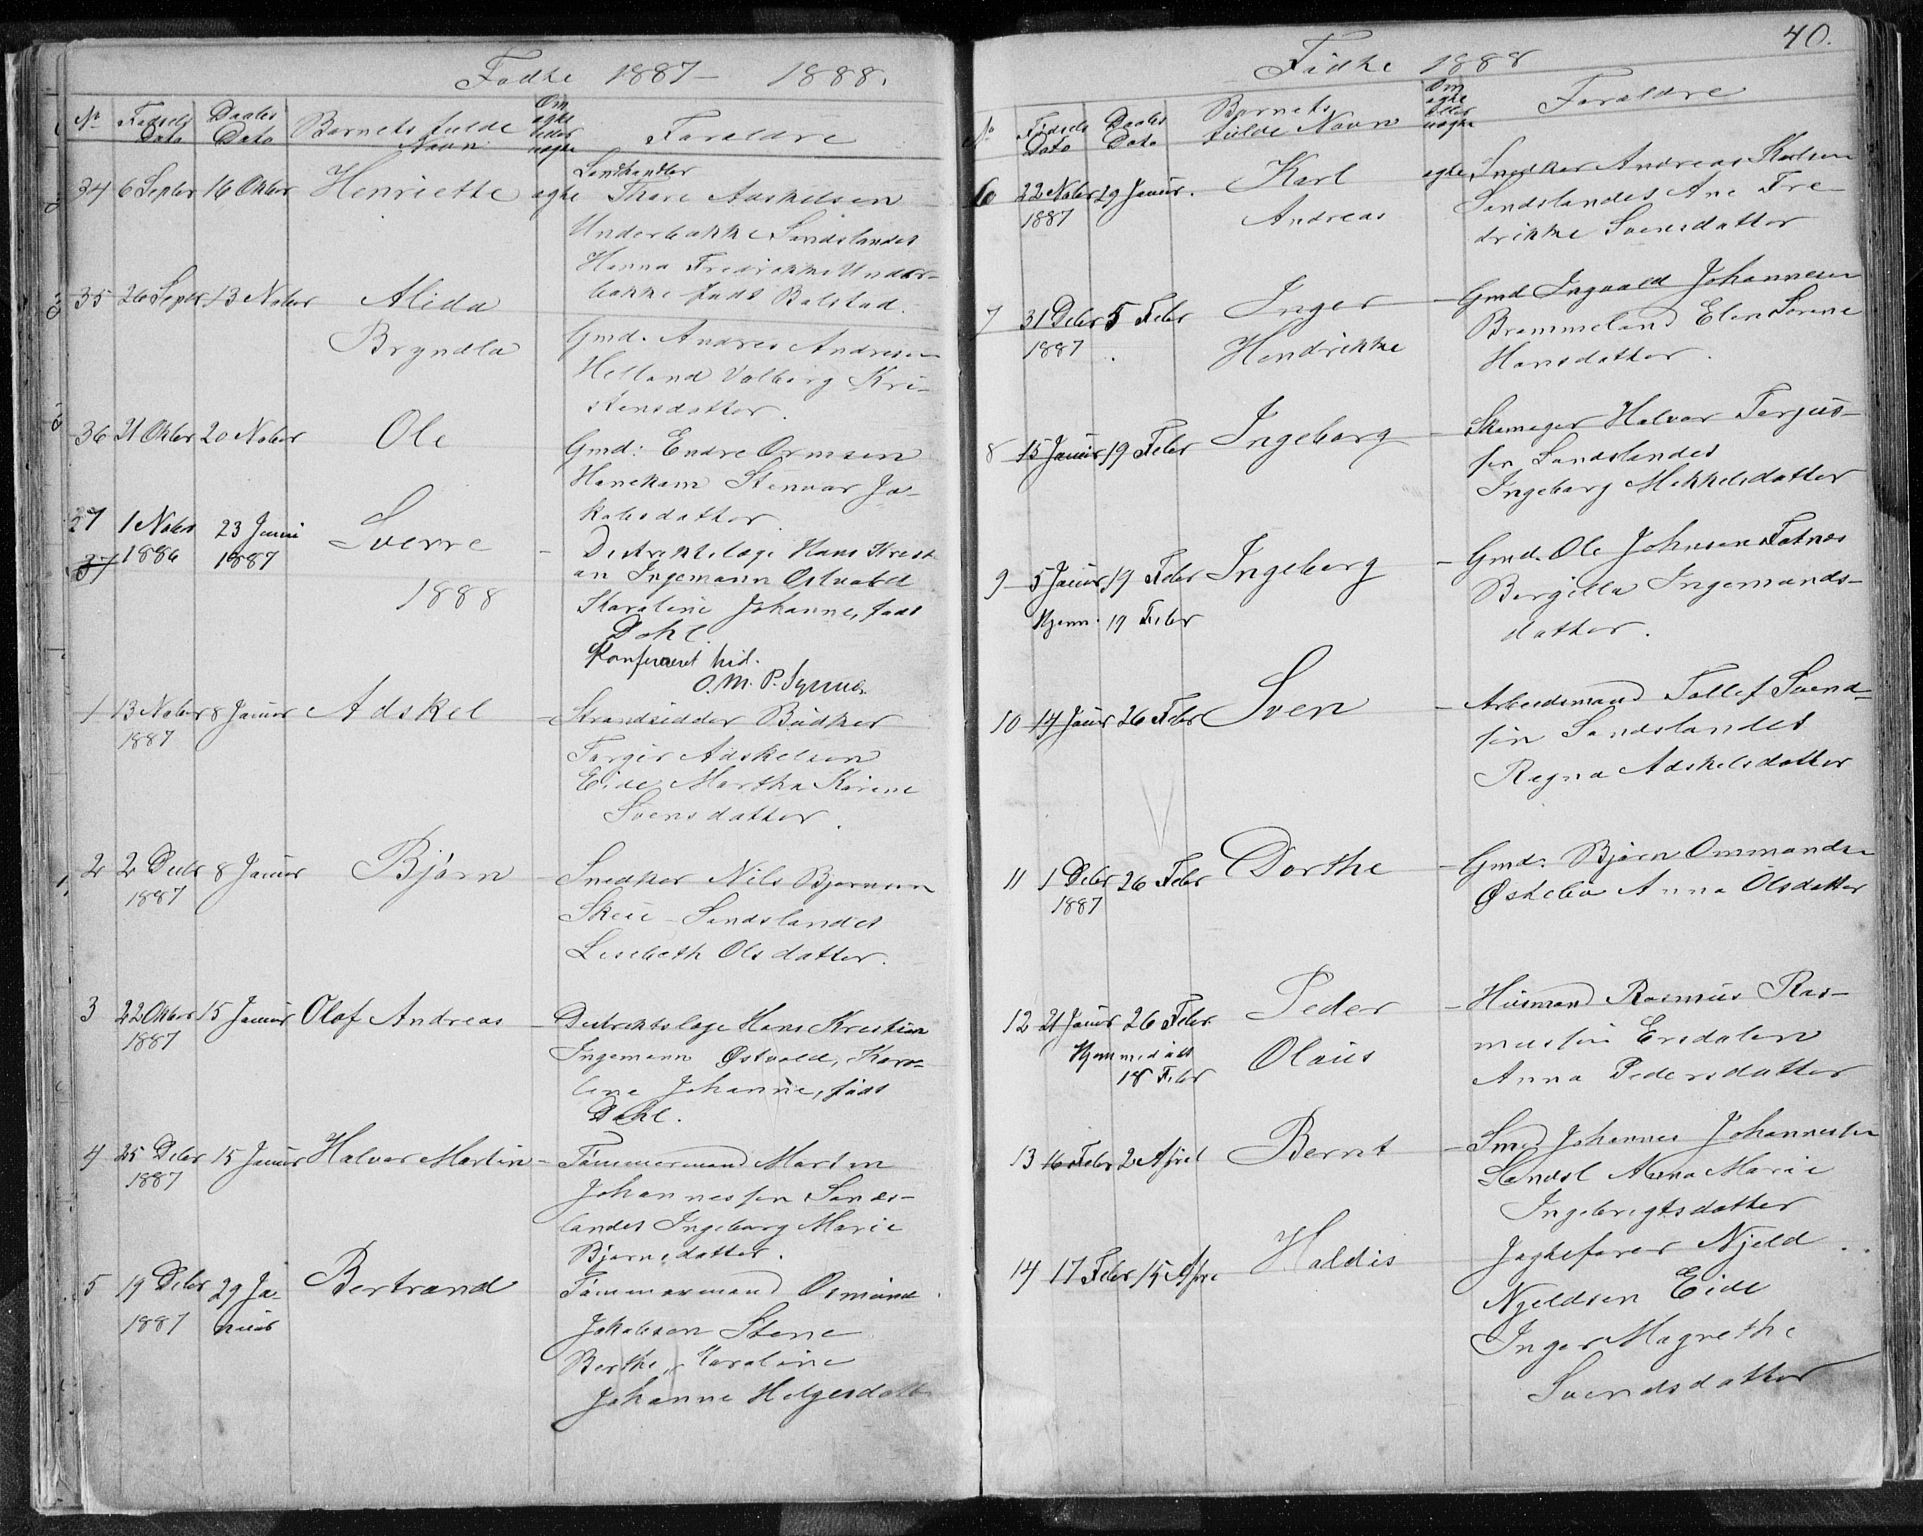 Fødte 1887 - 1888.
No Fødsels Dato Daabs Dato Barnets fulde Navn Om ægte eller uægte Forældre
34 6 Septbr 16 Oktbr Henriette ægte Landhandler
Thore Adskelsen
Underbakke Sandslandet
Hanna Fredrikke Under-
bakke født Bolstad.
35 26 Septr 13 Novbr Alida
Bryndla
Gmd. Andres Andresen
Helland Valborg Kri-
stensdatter.
36 21 Oktbr 20 Novbr Ole
Gmd: Endre Ormsen
Hanekam Stenvor Ja-
kobsdatter.
37 1 Novbr 1886 23 Juni 1887 Sverre -
Distriktslæge Hans Krist
an Ingemann Østvold
Karoline Johanne, født
Dahl.
Konfereret hid.
1888
1 13 Novbr 1887 8 Januar Adskel -
Strandsidder Bødker
Torger Adskelsen
Eide Martha Karine
Svensdatter.
2 2 Decbr 1887 8 Januar Bjørn -
Snedker Nils Bjørnsen
Skeie - Sandslandet
Lisebeth Olsdatter.
3 22 Oktbr 1887 15 Januar Olaf Andreas -
Distriktslæge Hans Kristian
Ingemann Østvold, Karo-
line Johanne, født
Dahl.
4 25 Decbr 1887 15 Januar Halvor Martin -
Tømmermand Martin
Johannessen Sands-
landet Ingeborg Marie
Bjørnsdatter.
5 19 Decbr 1887 29 Ja-
nuar Bertrand
Tømmermand Osmund
Jakobsen Stene
Berthe Karoline
Johanne Helgesdatt
40.
Fødte 1888
No Fødsels Dato Daabs Dato Barnets fulde Navn Om ægte eller uægte Forældre
6 22 Novbr 1887 29 Januar. Karl
Andreas ægte
Snedker Andreas Karlsen
Sandslandet Ane Fre-
drikke Svensdatter
7 31 Decbr 1887 5 Febr Inger
Hendrikke -
Gmd Ingvald Johannesen
Brommeland Elen Serine
Hansdatter.
8 15 Januar 19 Febr Ingeborg -
Skomager Halvor Terjus-
sen Sandslandet
Ingeborg Mikkelsdatter
9 5 Januar 19 Febr Ingeborg -
Hjem. 19 Febr
Gmd. Ole Johnsen Fatnes
Bergitta Ingemands-
datter.
10 14 Januar 26 Febr Sven -
Arbeidsmand Tollef Svend-
sen Sandslandet
Ragna Adskelsdatter
11 1 Decbr 1887 26 Febr Dorthe -
Gmd: Bjørn Ommunds
Østebø Anna Olsdatter
12 21 Januar 26 Febr Peder
Olaus -
Hjemmedøbt
18 Febr
Husmand Rasmus Ras-
mussen Ersdalen
Anna Pedersdatter
13 16 Febr 2 April Bernt -
Smed Johannes Johannessen
Sandsl Anna Marie
Ingebrigtsdatter
14 17 Febr 15 Apr Haldis
Jagtefører Njeld
Njeldsen Eide
Inger Magrethe
Svendsdatter